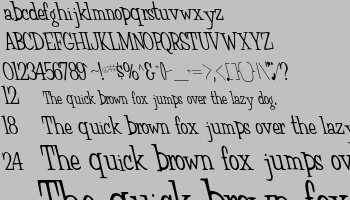 abcdefghijklmnopqrstuvwxyz
ABCDEFGHIJKLMNOPQRSTUVWXYZ
0123456789
12 The quick brown fox jumps over the lazy dog.
18 The quick brown fox jumps over the lazy
24 The quick brown fox jumps ov
The quick brown fox